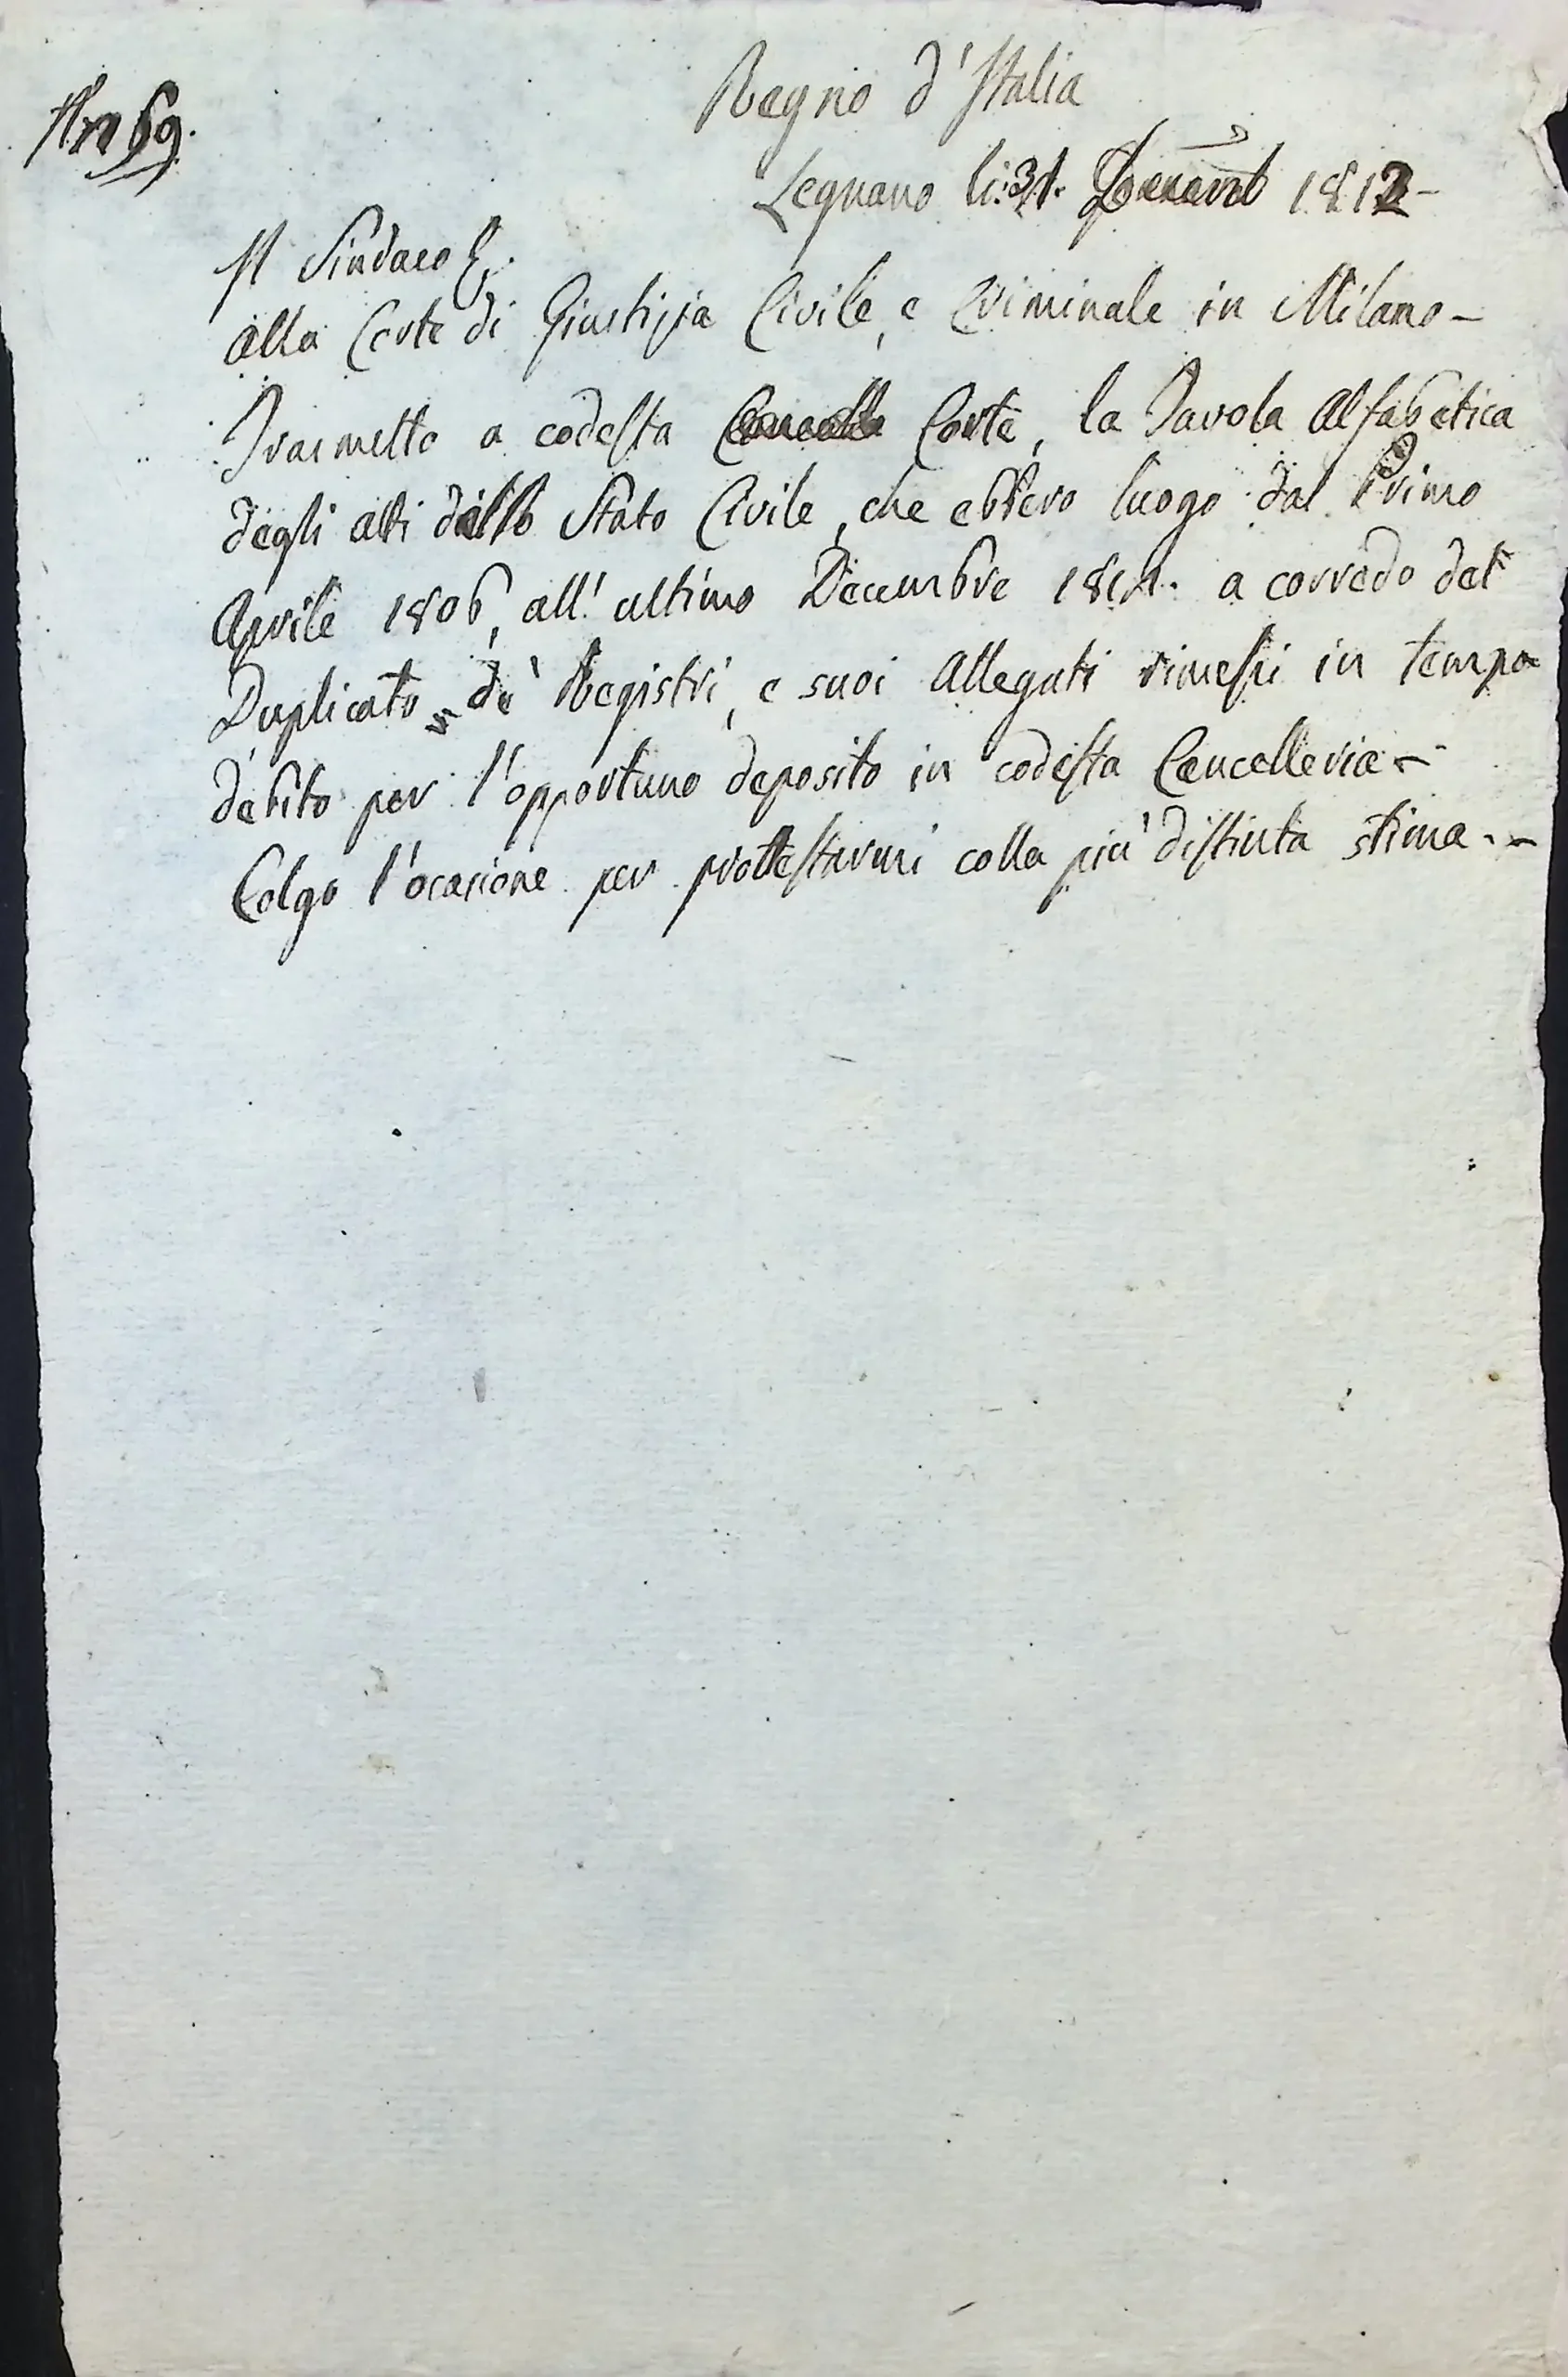 N.ro 69.
Regno d'Italia
Legnano li: 31. 1812 -
Il Sindaco
alla Corte di Giustizia Civile, e Criminale in Milano -
Trasmetto a codesta Corte, la Tavola Alfabetica
degli atti dello Stato Civile, che ebbero luogo dal Primo
Aprile 1806, all'ultimo Decembre 1811. a corredo del
Duplicato de' Registri, e suoi Allegati rimessi in tempo
debito per l'opportuno deposito in codesta Cancelleria -
Colgo l'ocasione per prottestarmi colla più distinta stima. -